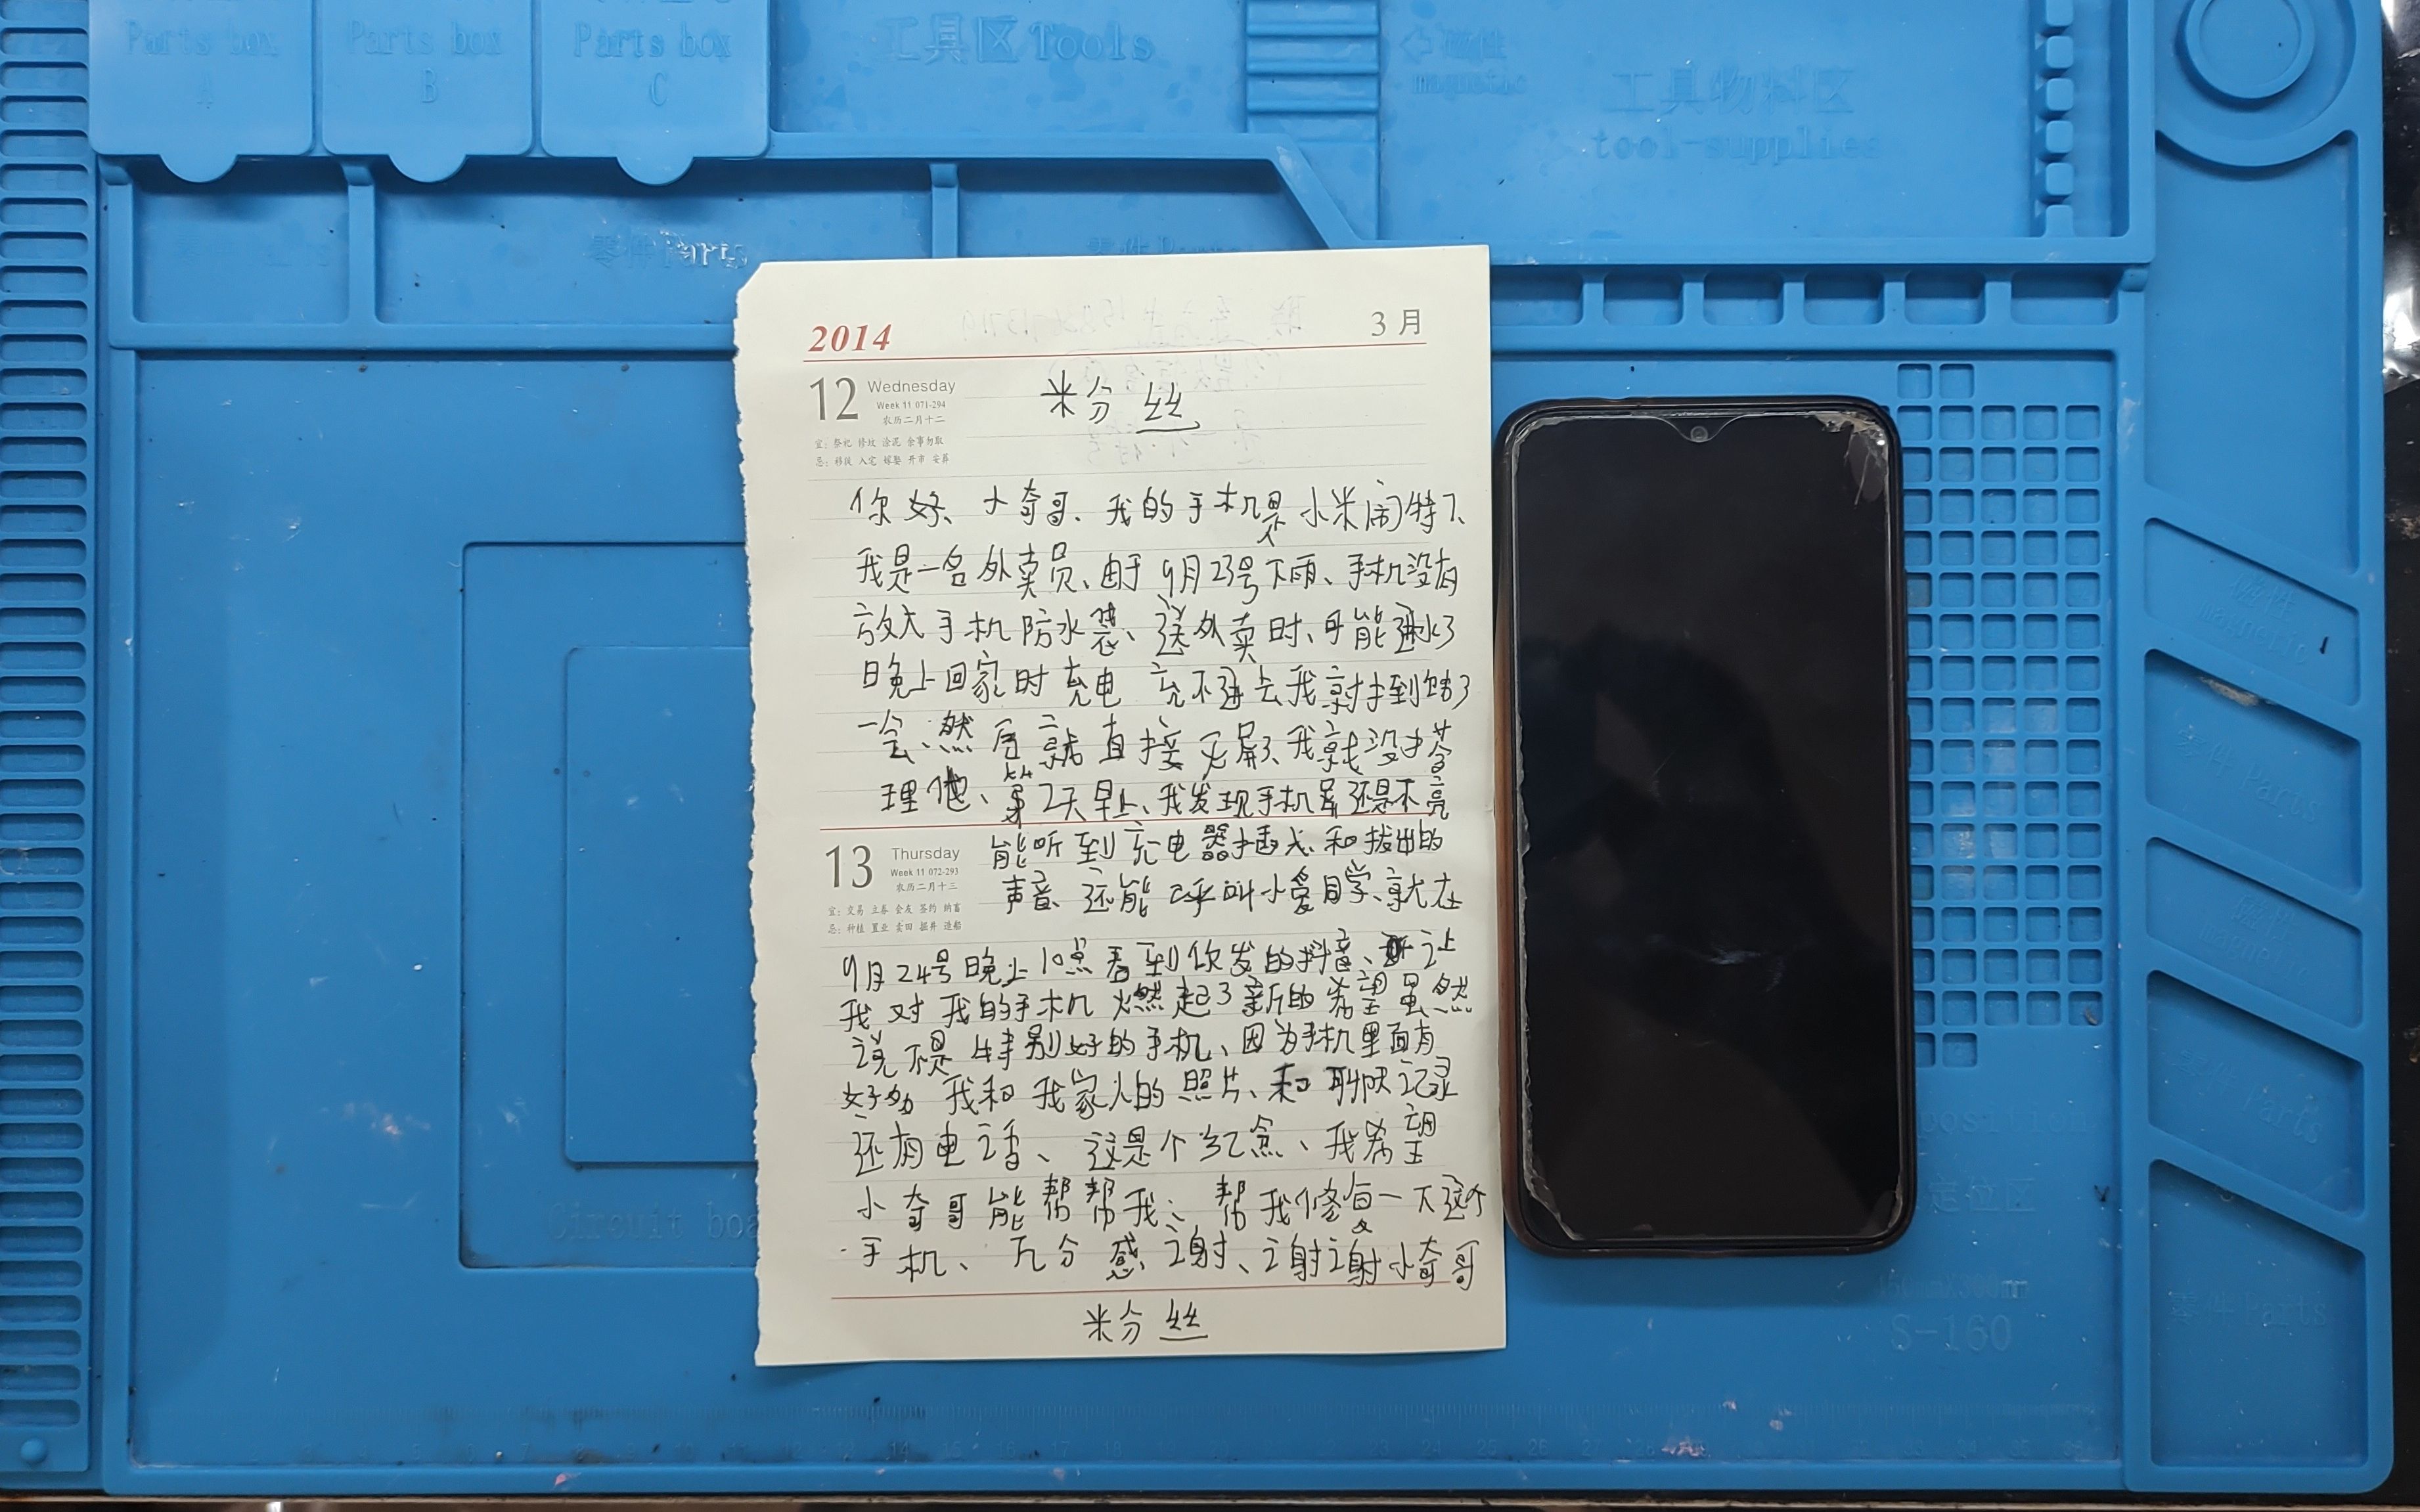 Parts box
A
Parts box
B
Parts box
C
工具区Tools
磁性
magnetic
工具物料区
tool-supplies
零件Parts
零件Parts
零件Parts
2014
3月
12 Wednesday
Week 11 071-294
农历二月十二
宜: 祭祀 修坟 涂泥 余事勿取
忌: 移徙 入宅 嫁娶 开市 安葬
粉丝
你好、小奇哥、我的手机是小米闹特7、
我是一名外卖员、由于9月23号下雨、手机没有
放大手机防水袋、送外卖时、可能进水了
晚上回家时充电 充不进去我就才到
一会、然后就直接 屏、我就没搭
理他、第2天早上、我发现手机屏还是不亮
13 Thursday
Week 11 072-293
农历二月十三
宜: 交易 立券 会友 签约 纳畜
忌: 种植 置业 卖田 掘井 造船
能听到充电器插 和拔出的
声音、还能呼叫小爱同学、就在
9月24号晚上10点看到你发的抖音、让
我对我的手机燃起了新的希望虽然
说不是特别好的手机、因为手机里面有
好多我和我家人的照片、和聊天记录
还有电话、这是个纪念、我希望
小奇哥能帮帮我、帮我修复一下这个
手机、万分感谢、谢谢小奇哥
粉丝
磁性
magnetic
零件Parts
磁性
magnetic
零件Parts
零件Parts
Circuit boa
position
定位区
S-160